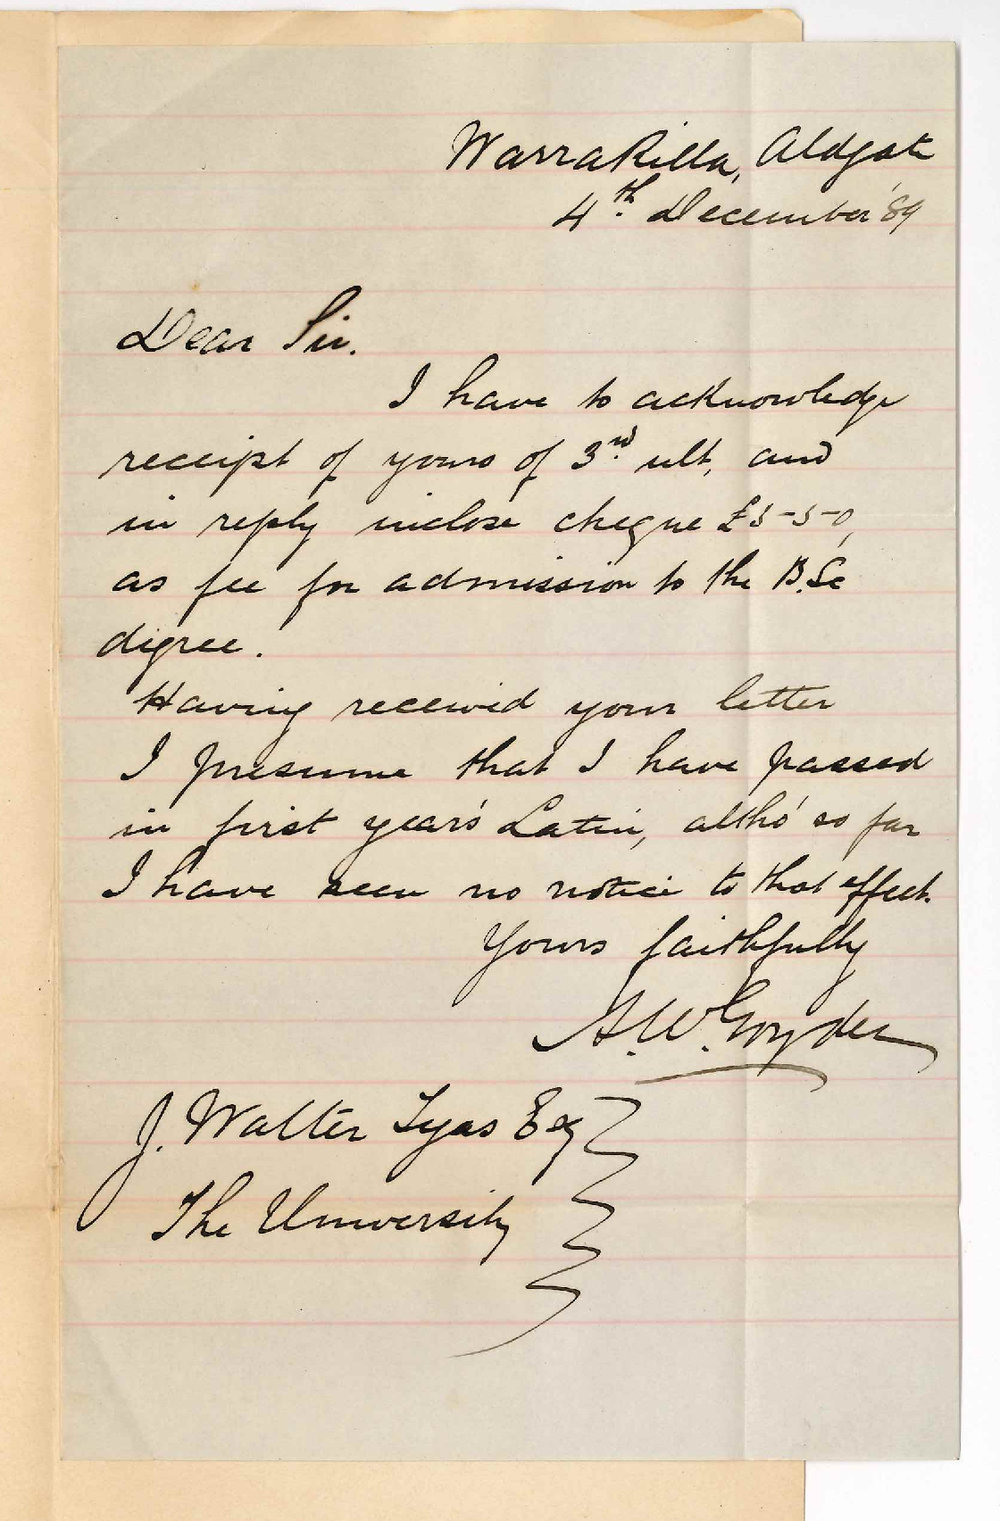 Warrakilla, Aldgate
4th. December '89
Dear Sir.
I have to acknowledge
receipt of yours of 3rd. ult, and
in reply inclose cheque £5-5-0,
as fee for admission to the B.Sc
degree.
Having received your letter
I presume that I have passed
in first year's Latin, altho' so far
I have seen no notice to that effect.
Yours faithfully
A.W. Goyder
J. Walter Tyas Esq
The University